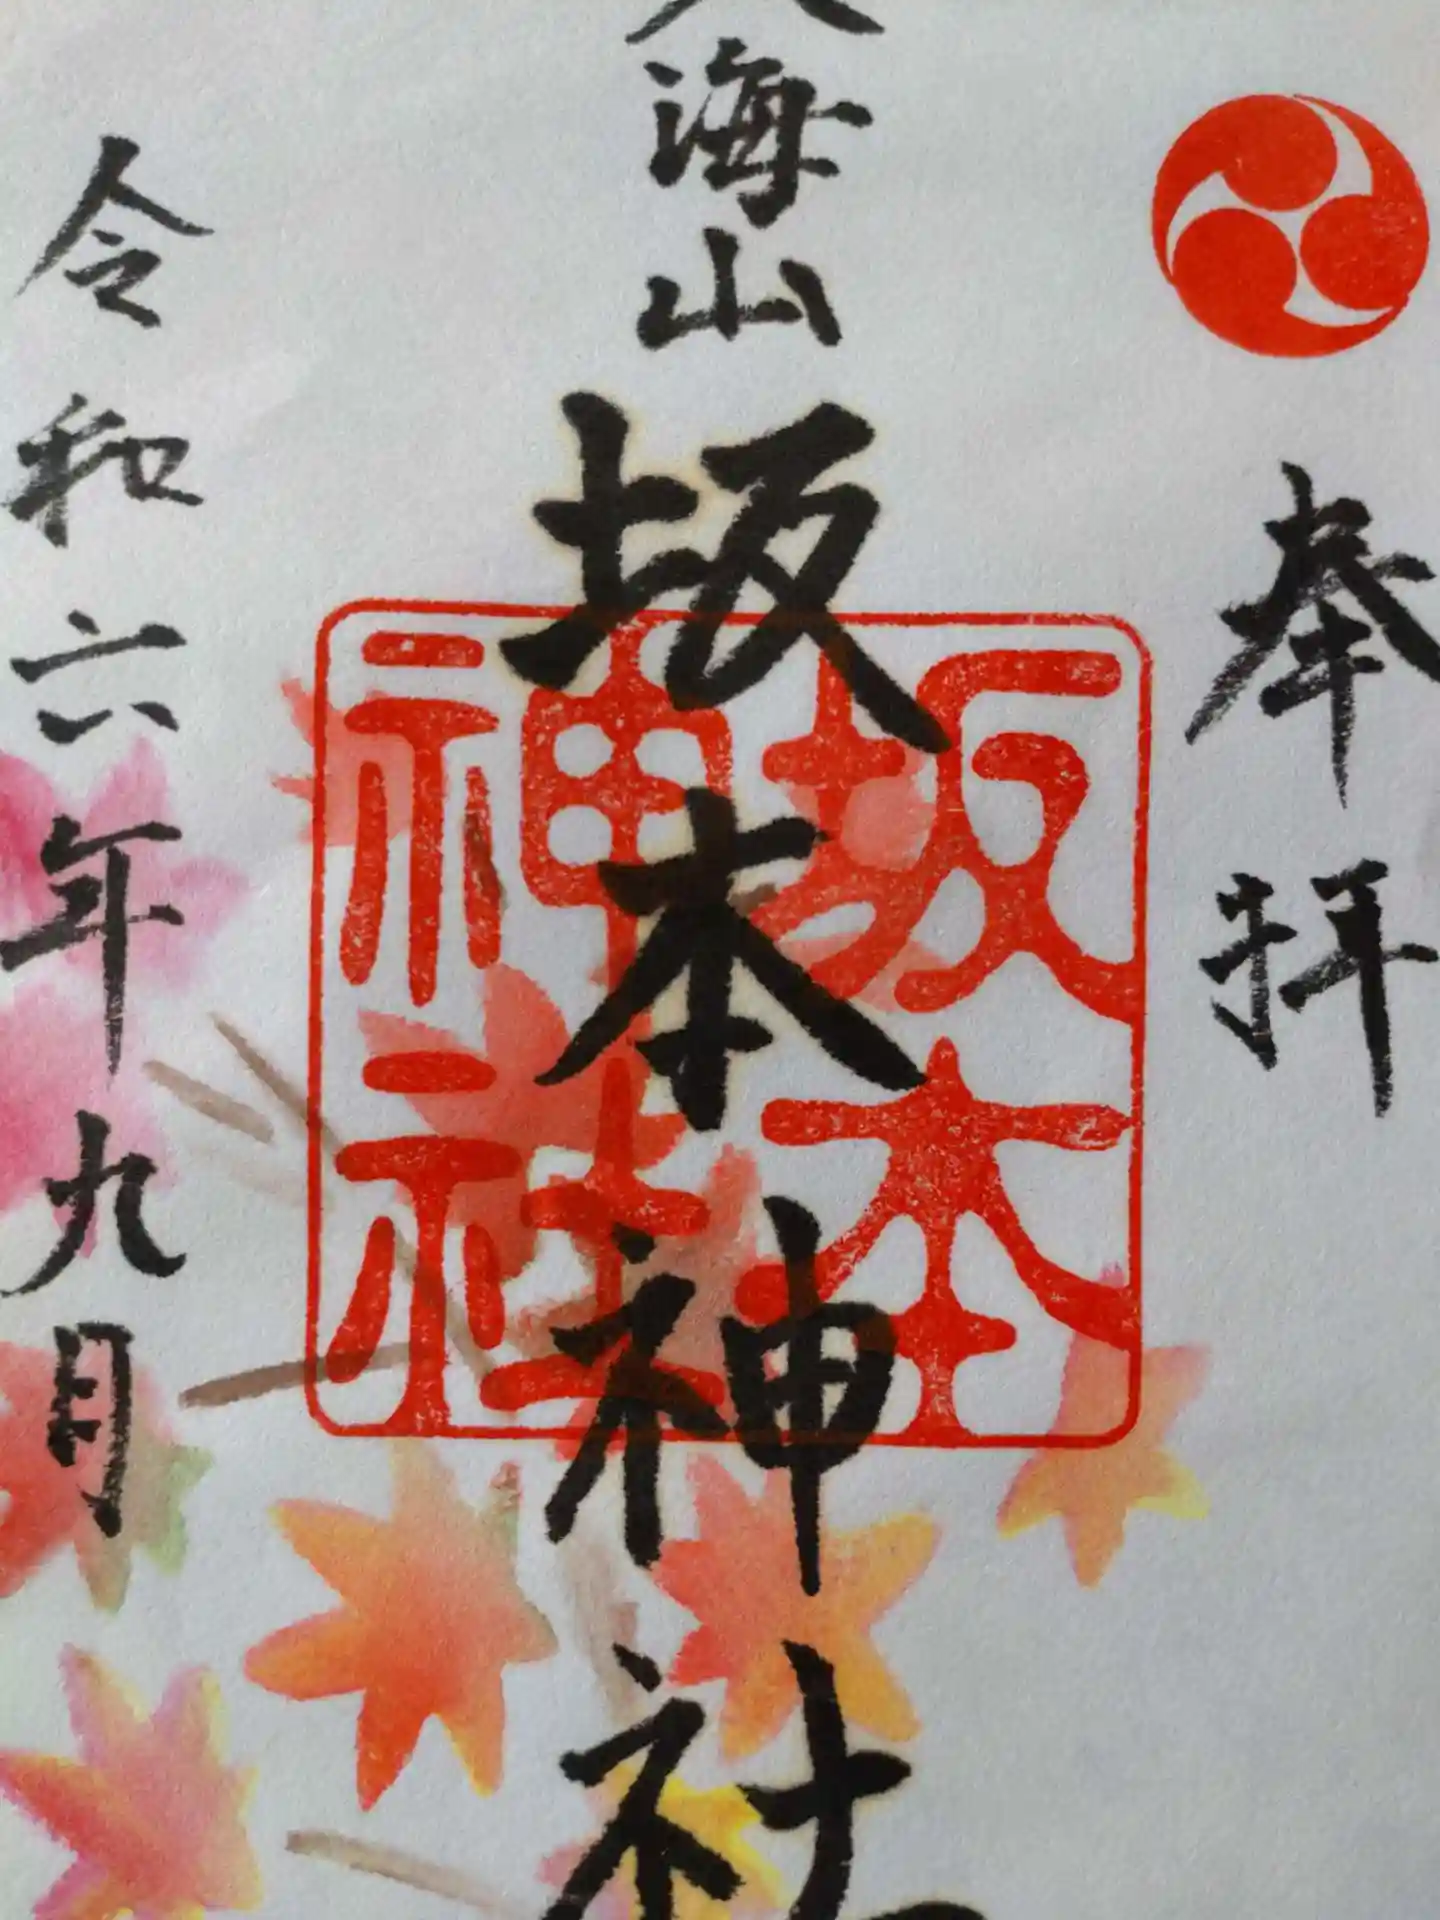 奉拝
海山
坂本神社
坂本
神社
令和六年九月